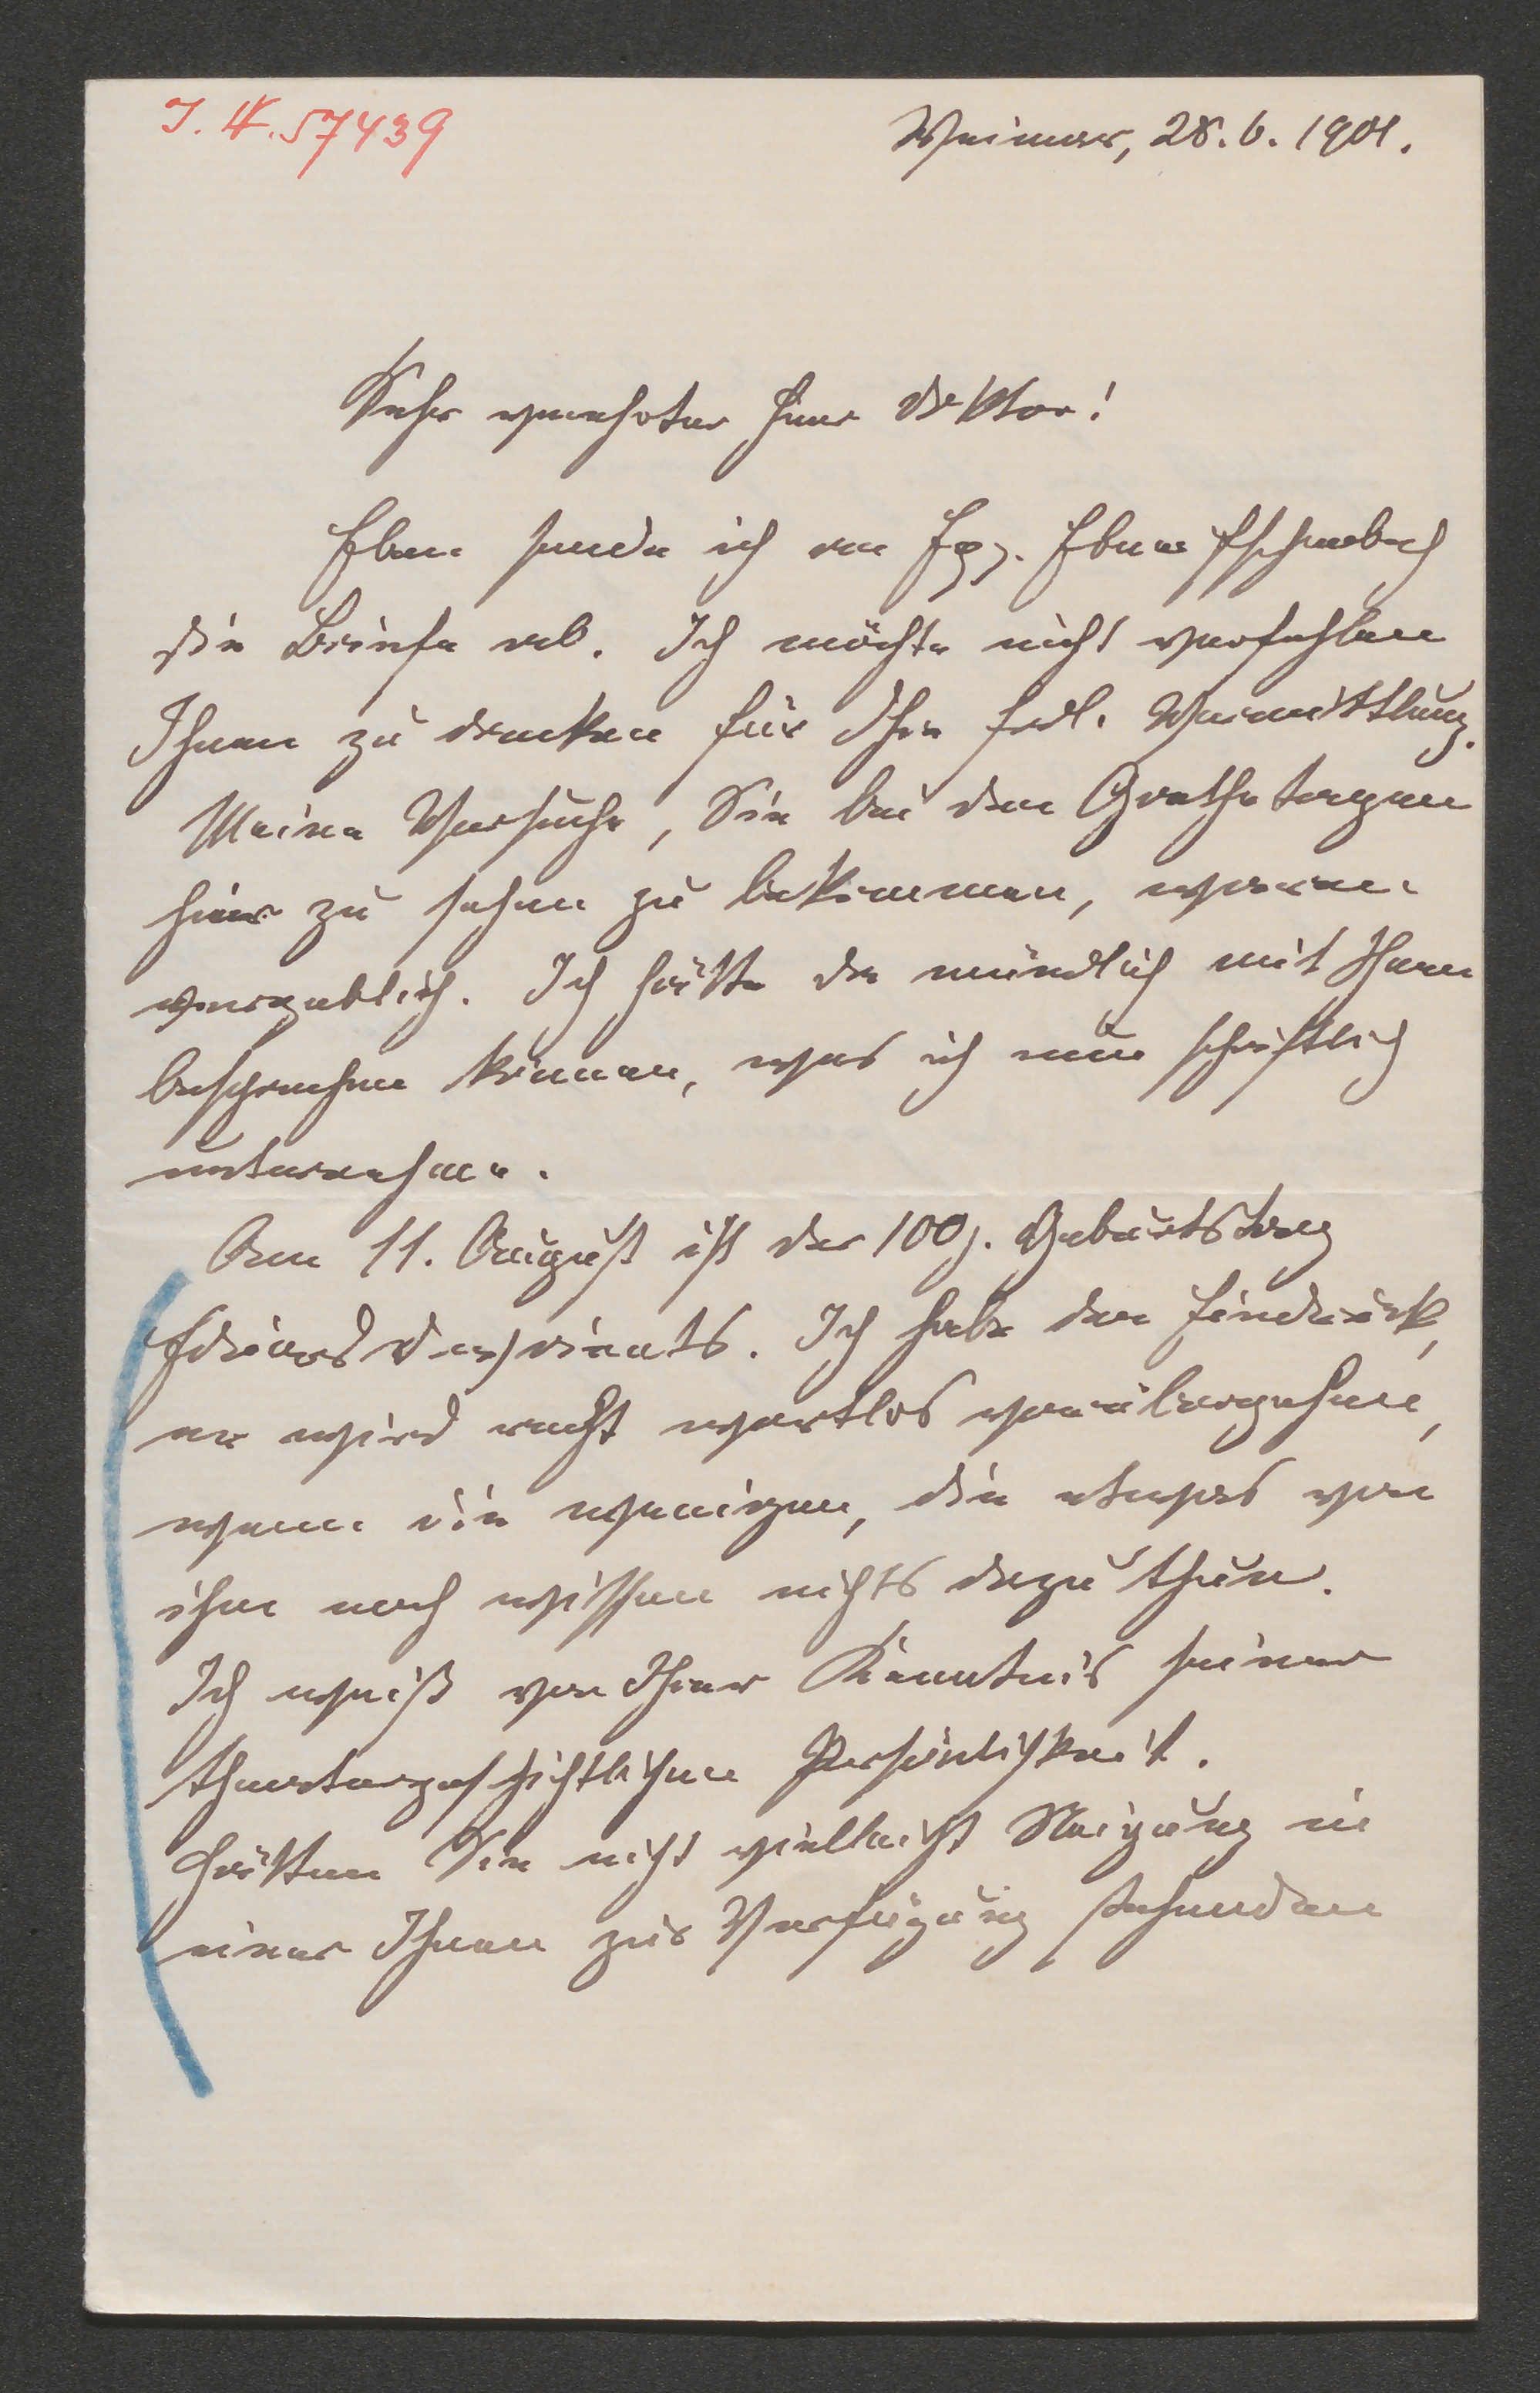 I. N. 57439
Weimar, 28. 6. 1901.
Sehr verehrter Herr Doktor!
Eben sende ich an Exz. Ebner Eschenbach
die Briefe ab. Ich möchte nicht verfehlen
Ihnen zu danken für Ihre frdl. Vermittlung.
Meine Versuche, Sie bei den Goethetagen
hier zu sehen zu bekommen, waren
vergeblich. Ich hätte da mündlich mit Ihnen
besprechen können, was ich nun schriftlich
unternehme.
Am 11. August ist der 100j. Geburtstag
Eduard Devrients. Ich habe den Eindruck,
er wird recht wortlos vorübergehen,
wenn die wenigen, die etwas von
ihm noch wissen nichts dazu thun.
Ich weiß von Ihrer Kenntnis seiner
theatergeschichtlichen Persönlichkeit.
Hätten Sie nicht vielleicht Neigung in
einer Ihnen zur Verfügung stehenden